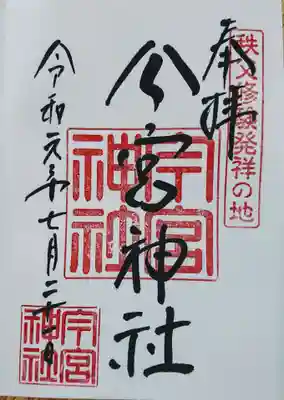 秩父修験発祥の地
奉拝
今宮神社
今宮神社
令和元年七月二十日
今宮神社